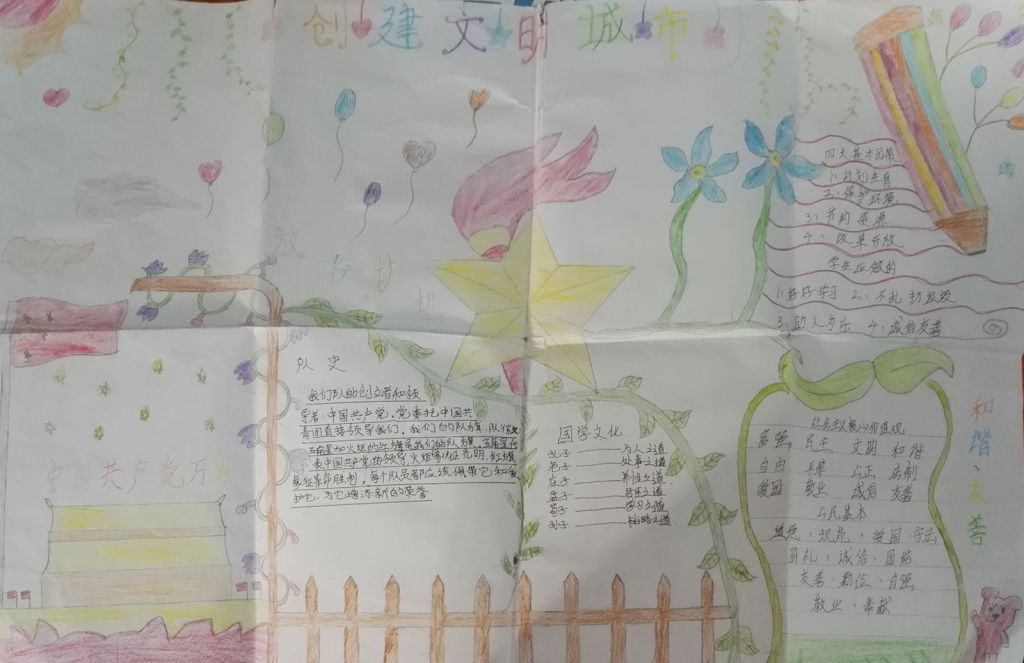 创建文明城市
放飞梦想
四大基本国策
1、计划生育
2、保护环境
3、节约资源
4、改革开放
学生应做的
1、好好学习 2、不乱扔垃圾
3、助人为乐 4、诚信友善
队史
我们队的创立者和领
导者：中国共产党，党委托中国共
青团直接领导我们，我们的队旗：队伍
五角星加火炬的红旗是我们的队旗，五角星代
表中国共产党的领导，火炬象征光明，红旗
象征革命胜利，每个队员都应该佩带它和爱
护它，为它增添新的荣誉
国学文化
孔子——为人之道
老子——处事之道
庄子
孟子——君子之道
荀子——学习之道
中国共产党万
社会主义核心价值观
富强 民主 文明 和谐
自由 平等 公正 法制
爱国 敬业 诚信 友善
公民基本
道德、规范、爱国·守法
明礼、诚信、团结
友善·勤俭·自强
敬业·奉献
和谐、友善